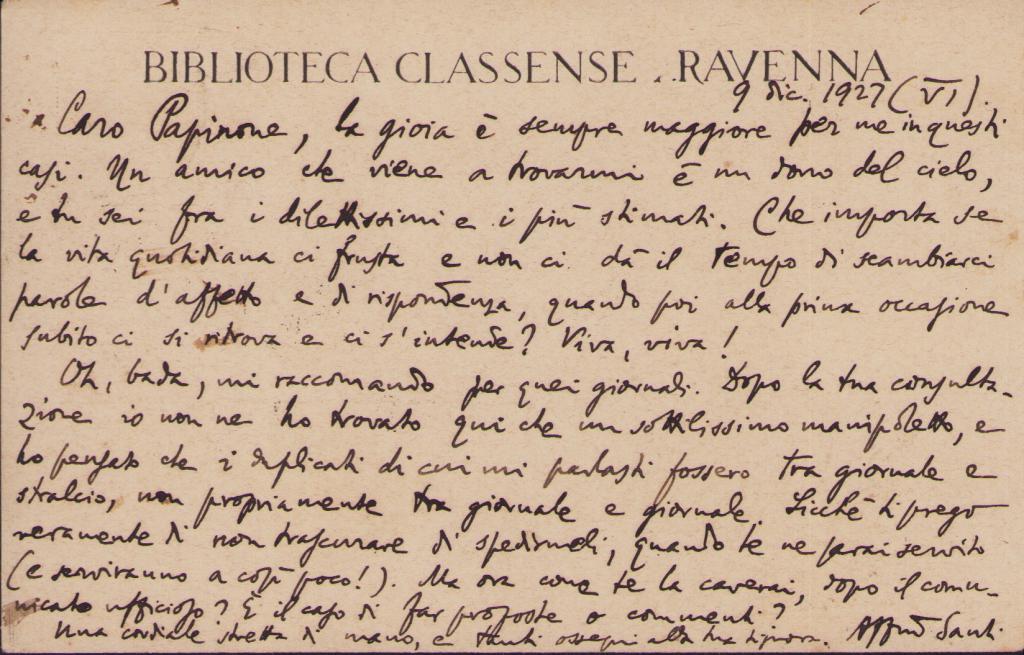 BIBLIOTECA CLASSENSE . . RAVENNA
9 dic. 1927 (VI).
Caro Papinone, la gioia è sempre maggiore per me in questi
casi. Un amico che viene a trovarmi è un dono del cielo,
e tu sei fra i dilettissimi e i più stimati. Che importa se
la vita quotidiana ci frusta e non ci dà il tempo di scambiarci
parole d'affetto e di rispondenza, quando poi alla prima occasione
subito ci si ritrova e ci s'intende? Viva, viva!
Oh, bada, mi raccomando per quei giornali. Dopo la tua consulta-
zione io non ne ho trovato qui che un sottilissimo manipoletto, e
ho pensato che i duplicati di cui mi parlasti fossero tra giornale e
stralcio, non propriamente tra giornale e giornale. Sicché ti prego
veramente di non trascurare di spedirmeli, quando te ne sarai servito
(e serviranno a così poco!). Ma ora come te la caverai, dopo il comu-
nicato ufficioso? È il caso di far proposte o commenti?
Una cordiale stretta di mano, e tanti ossequi alla tua signora. Santi